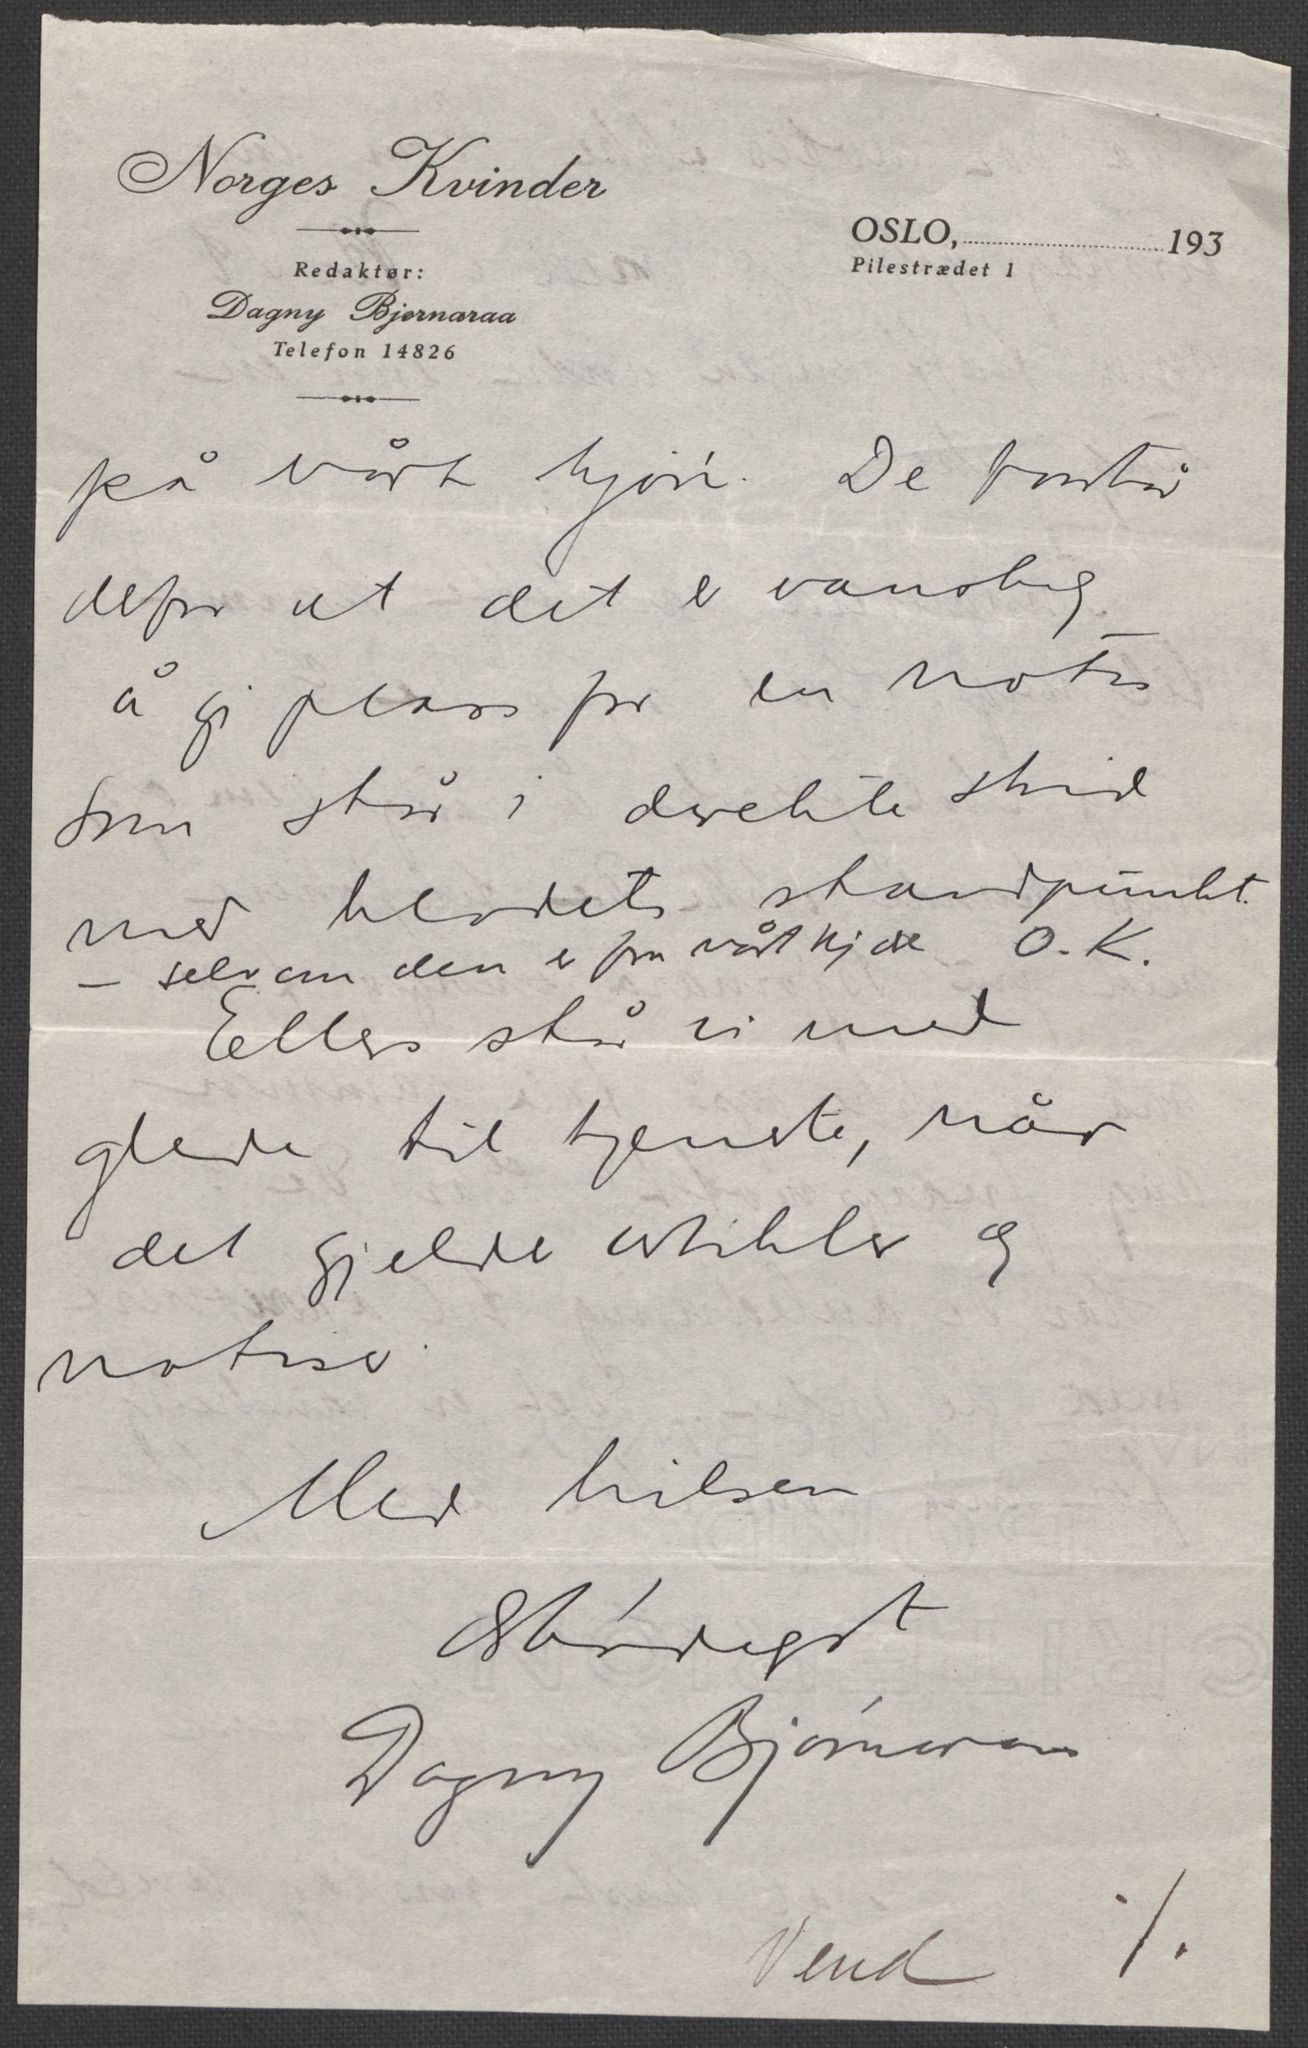 Norges Kvinder
Redaktør:
Dagny Bjørnaraa
Telefon 14826
OSLO, 193
Pilestrædet 1
på vårt hjørne. De forstår
defor at det er vanskelig
å gi plass for en notis
som står i direkte strid
med bladets standpunkt.
– selv om den er fra vårt hjørne O.K.
Ellers står vi med
glede til tjeneste, når
det gjelder artikler og
notiser.
Med hilsen
ærbødigst
Dagny Bjørnaraa
Vend ./.